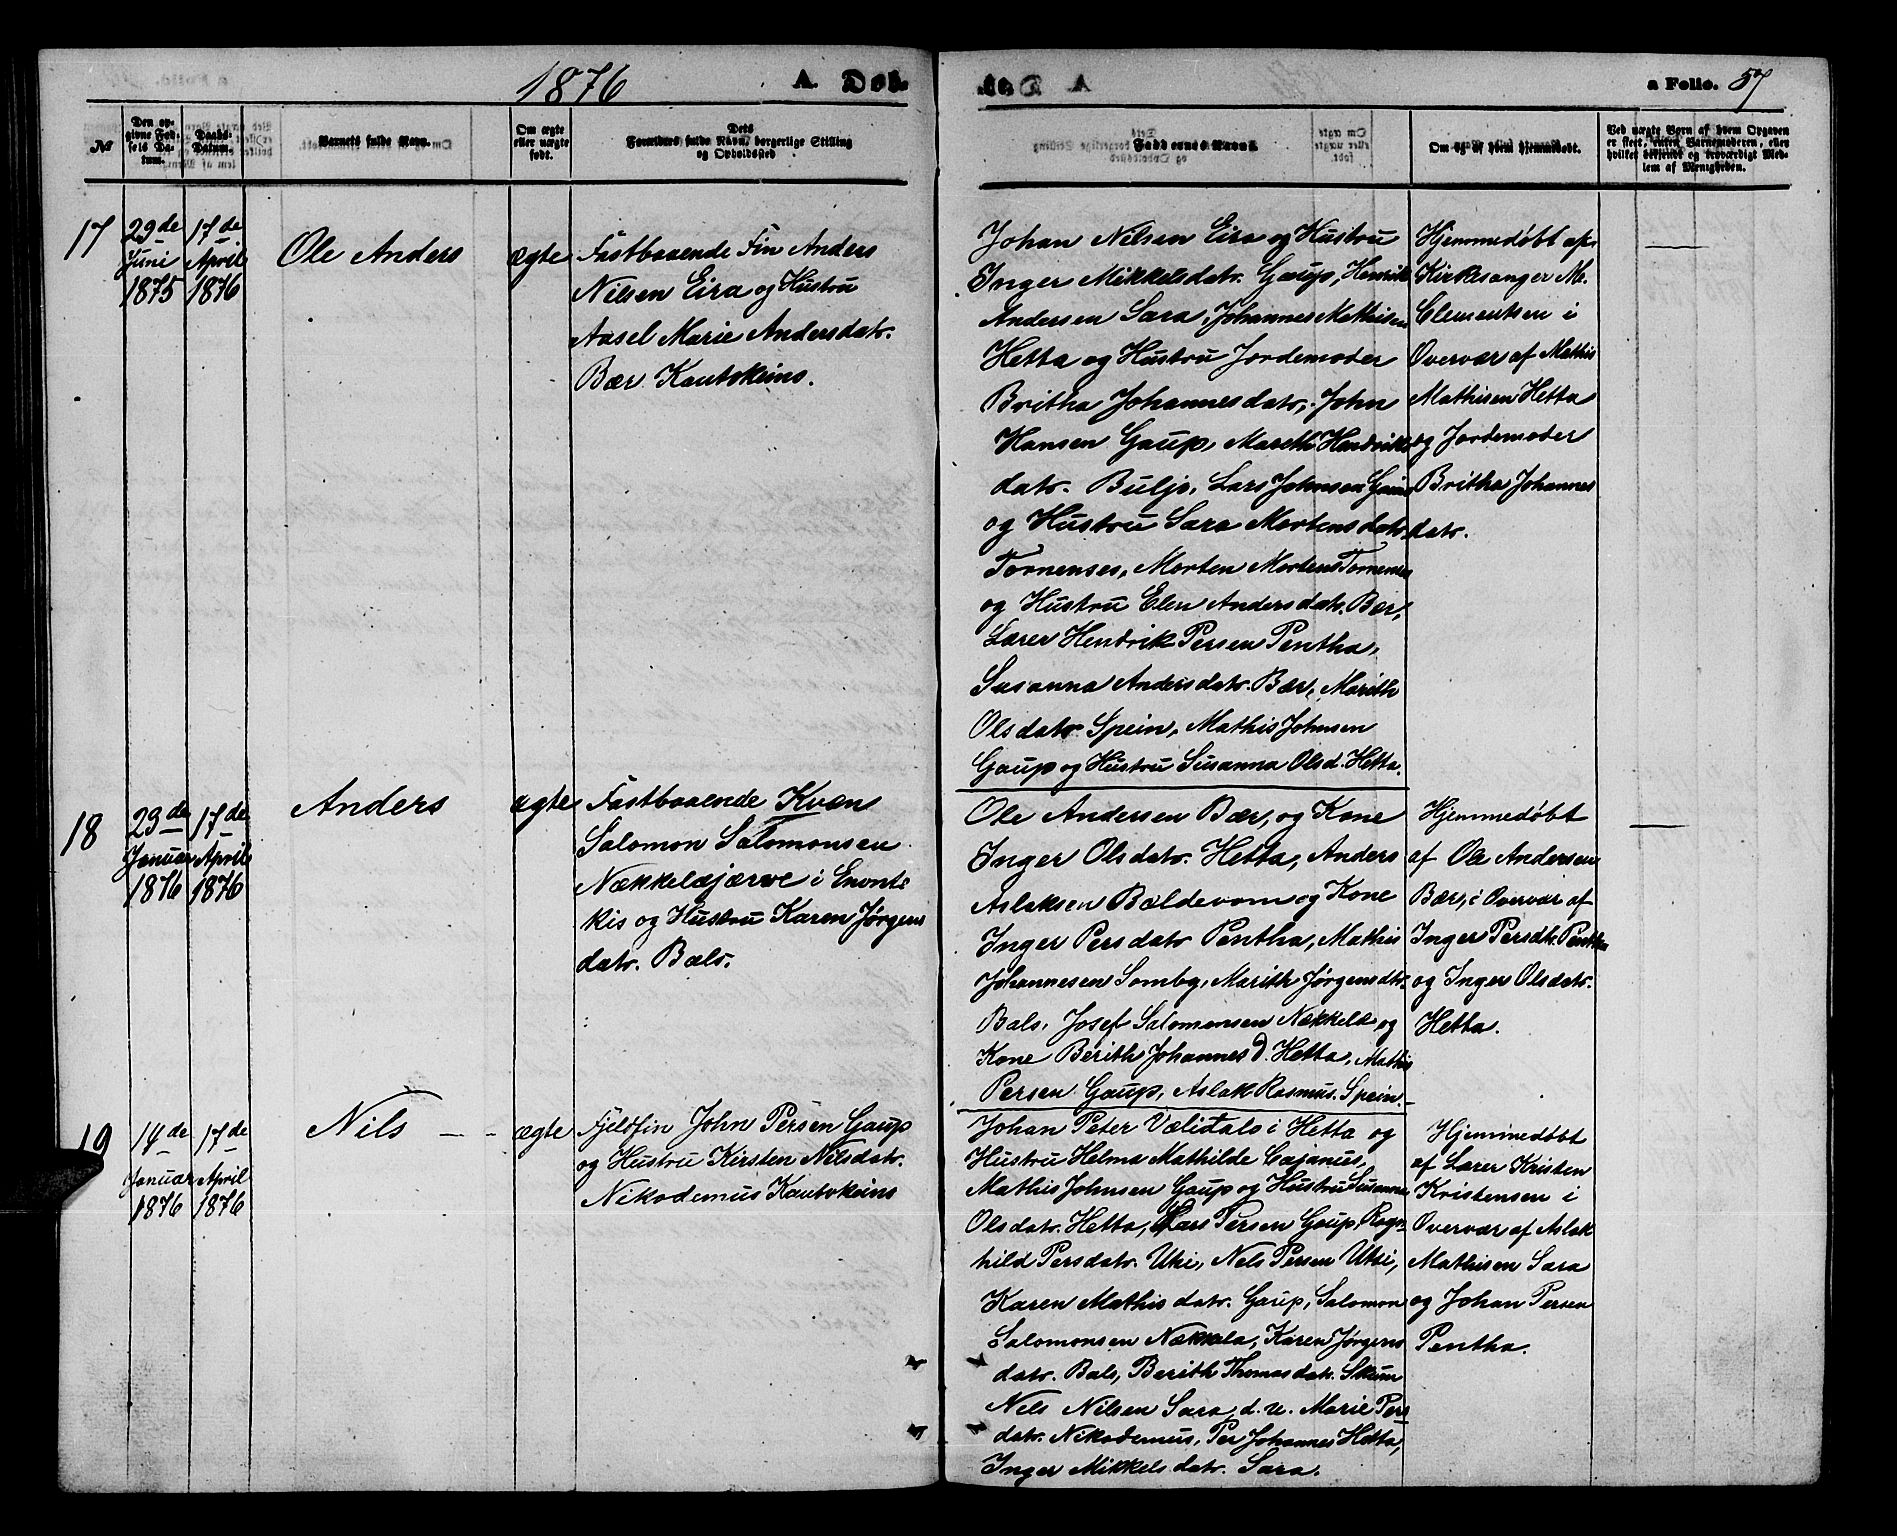 1876
A. Døb.
a Folio. 57
No
Den op-
givne Fød-
sels Da-
tum.
Daabs-
Datum.
Barnets fulde Navn.
Om ægte
eller uægte
født.
Dets
Forældres fulde Navn, borgerlige Stilling
og Opholdssted
Faddernes Navne
Om og af hvem hjemmedøbt.
Ved uægte Børn af hvem Opgaven
er skeet, enten Barnemoderen, eller
hvilket bekjendt og troværdigt Med-
lem af Menigheden.
17
29de
Juni
1875
17de
April
1876
Ole Anders
ægte
Fastboaende Fin Anders
Nilsen Eira og Hustru
Aasel Marie Andersdatr.
Bær Kautokeino.
Johan Nilsen Eira og Hustru
Inger Mikkelsdatr. Gaup, Henrik
Andersen Sara, Johannes Mathisen
Hetta og Hustru Jordemoder
Britha Johannesdatr, John
Hansen Gaup, Mareth Hendriks
datr. Buljo, Lars Johnsen Gaino
og Hustru Sara Mortensdatr
Tornenses, Morten Mortens Tornenses
og Hustru Elen Andersdatr. Bær,
Lærer Hendrik Persen Pentha,
Susanna Andersdatr. Bær, Marith
Olsdatr Spein, Mathis Johnsen
Gaup og Hustru Susanna Olsd. Hetta.
Hjemmedøbt af
Kirkesanger M.
Clementsen i
Overvær af Mathis
Mathisen Hetta
og Jordemoder
Britha Johannes
datr.
18
23de
Januar
1876
17de
April
1876
Anders
ægte
Fastboaende Kvæn
Salomon Salomonsen
Nækkelæjærve i Enonte
kis og Hustru Karen Jørgens
datr. Bals.
Ole Andersen Bær, og Kone
Inger Olsdatr. Hetta, Anders
Aslaksen Baldevom og Kone
Inger Persdatr Pentha, Mathis
Johannesen Somby, Marith Jørgensdtr.
Bals, Josef Salomonsen Nækkelæ og
Kone Berith Johannes D. Hetta, Mathis
Persen Gaup, Aslak Rasmus. Spein.
Hjemmedøbt
af Ole Andersen
Bær, i Overvær af
Inger Persdtr. Pentha
og Inger Olsdatr.
Hetta.
19
14de
Januar
1876
17de
April
1876
Nils
ægte
Fjeldfin John Persen Gaup
og Hustru Kirsten Nilsdatr.
Nikodemus Kautokeino
Johan Peter Vælitals i Hetta og
Hustru Helma Mathilde Cajanus,
Mathis Johnsen Gaup og Hustru Susanne
Olsdatr. Hetta, Lars Persen Gaup, Ragn-
hild Persdatr. Utsi, Nels Persen Utsi,
Karen Mathisdatr. Gaup, Salomon
Salomonsen Nækkala, Karen Jørgens
datr. Bals, Berith Thomasdatr. Skum
Nels Nilsen Sara d. u. Marie Pers
datr. Nikodemus, Per Johannes Hetta,
Inger Mikkelsdatr. Sara.
Hjemmedøbt
af Lærer Kristen
Kristensen i
Overvær af Aslak
Mathisen Sara
og Johan Persen
Pentha.